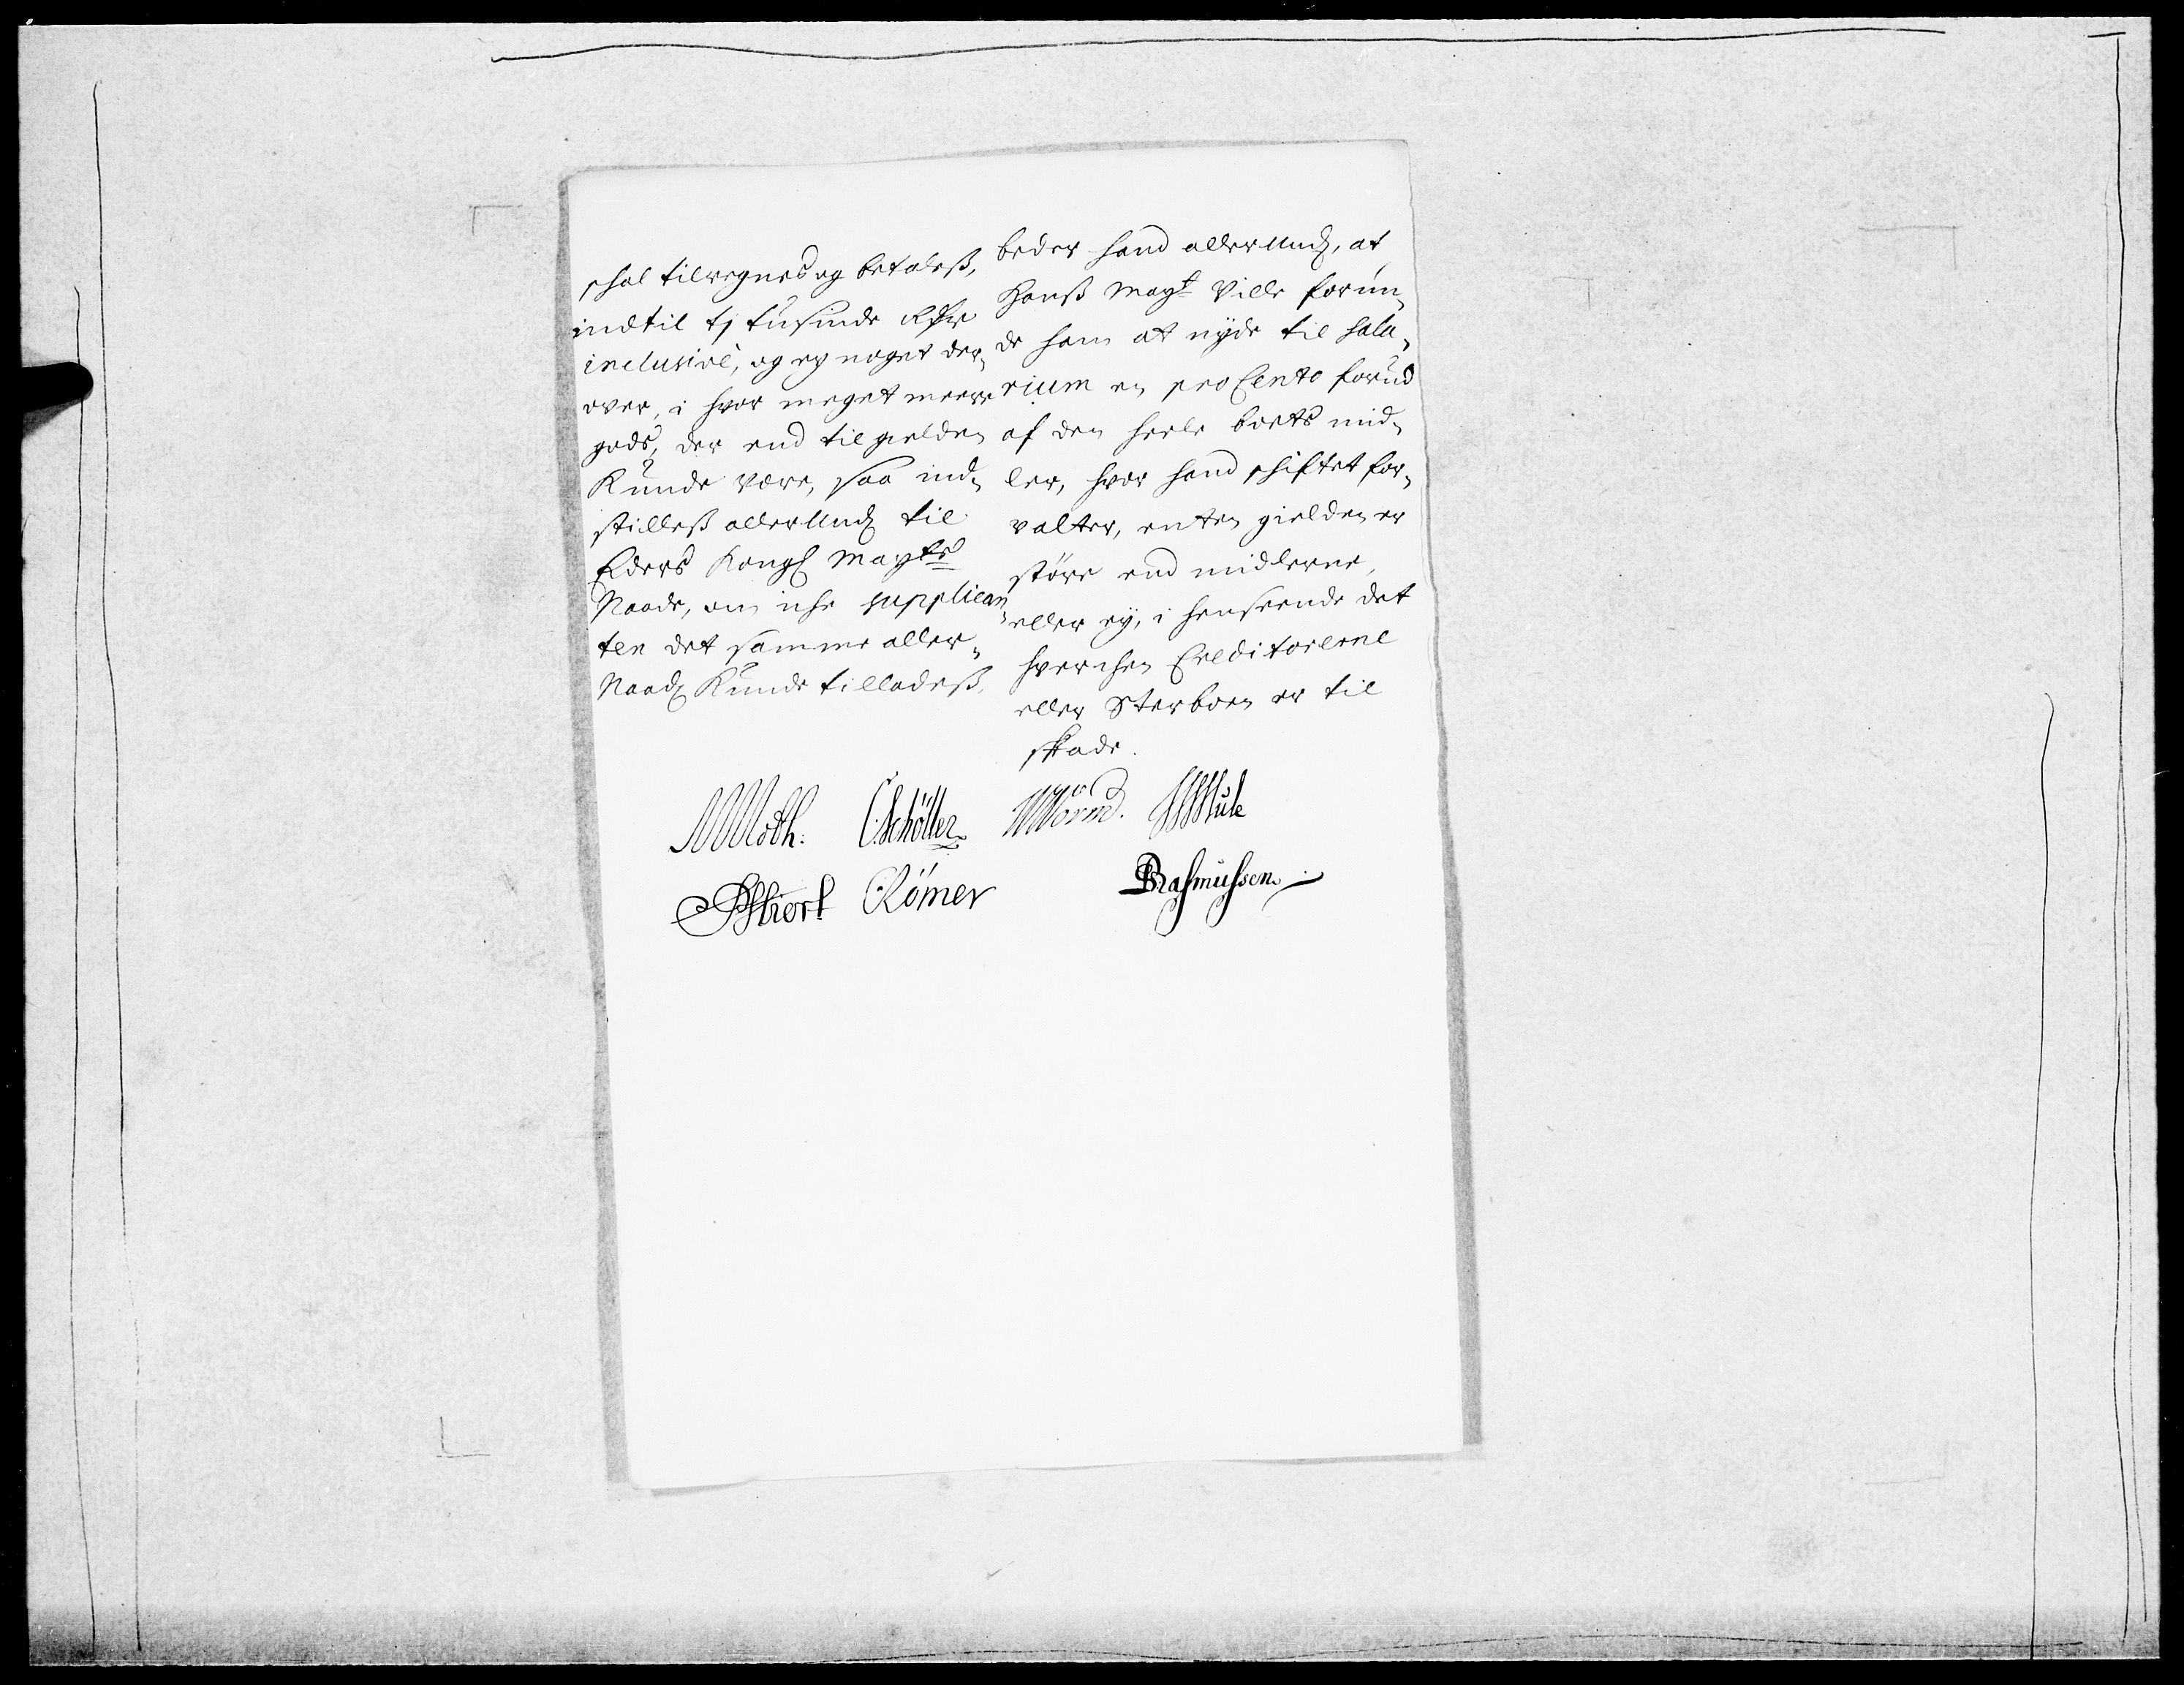 schal tilregnes og betaleß,
indtil ti tusinde Rdr
inclusivè, og ey noget der„
over, i hvor meget meere
gods, der end til gielden
Kunde være, saa ind„
stilleß allerUnd. til
Eders Kongl Maÿts
Naade, om iche supplican„
ten det samme aller„
Naad. Kunde tilladeß,
beder hand allerUnd., at
Hanß Maÿt Ville forun„
de ham at nÿde til Sala„
rium en pro Cento forud
af den heele boets mid„
ler, hvor hand schiftet for„
valter, enten gielden er
større end midlerne,
eller eÿ, i henseende det
hverchen Creditorerne
eller Sterboen er til
skade.
MMoth. CSchöller WWorm. Mule
Hiort CRömer Rasmussen